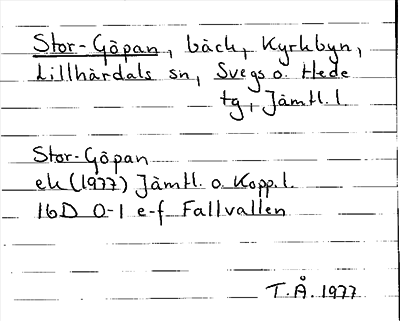 Stor-Göpan, bäck, Kyrkbyn,
Lillhärdals sn, Svegs o. Hede
tg, Jämtl. l.
Stor-Göpan
ek (1977) Jämtl. o Kopp. l.
16D 0-1 e-f Fallvallen
T.Å. 1977